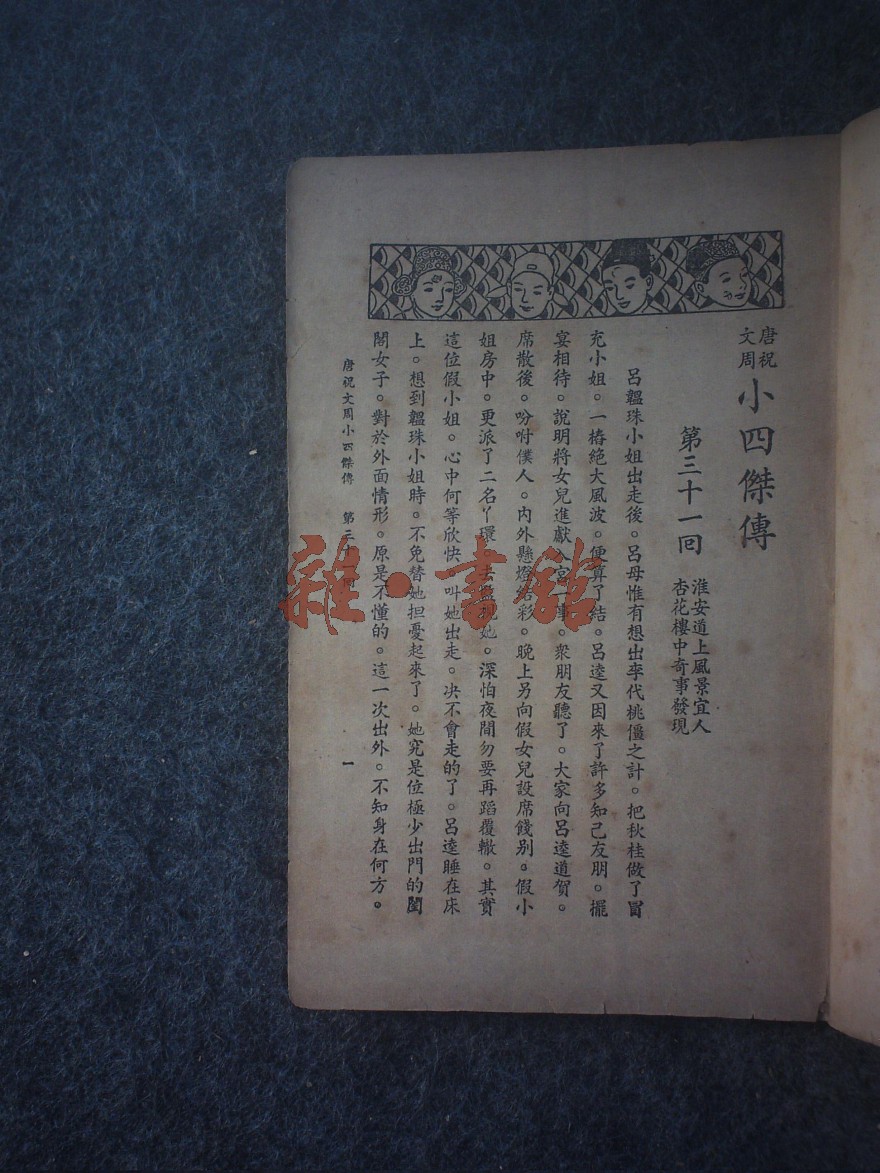 唐祝
文周
小四傑傳
第三十一回
淮安道上風景宜人
杏花樓中奇事發現
呂韞珠小姐出走後。呂母惟有想出李代桃僵之計。把秋桂做了冒
充小姐。一樁絕大風波。便算了結。呂逵又因來了許多知己友朋。擺
宴相待。說明將女兒進獻入宮事。眾朋友聽了。大家向呂逵道賀。
席散後。吩咐僕人。內外懸燈結彩。晚上另向假女兒設席餞別。假小
姐房中。更派了二名丫環。去她。深怕夜間勿要再蹈覆轍。其實
這位假小姐。心中何等欣快。叫她出走。决不會走的了。呂逵睡在床
上。想到韞珠小姐時。不免替她担憂起來了。她究是位極少出門的閨
閣女子。對於外面情形。原是不懂的。這一次出外。不知身在何方。
唐祝文周小四傑傳 第三十一回
一
雜·書館